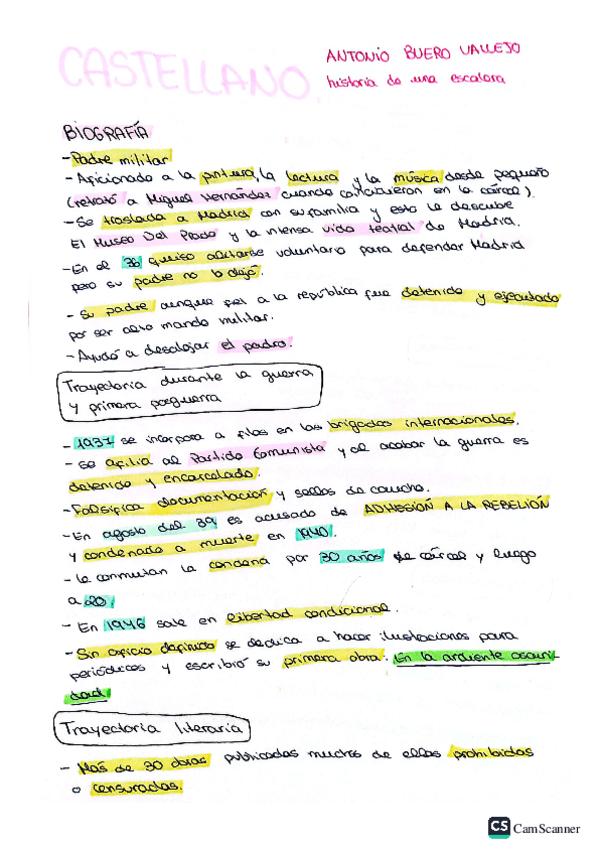 CASTELLANO
ANTONIO BUERO VALLEJO
historia de una escalera
BIOGRAFÍA
- Padre militar
- Aficionado a la pintura, la lectura y la música desde pequeño
(retrató a Miguel Hernández cuando coincidieron en la cárcel).
- Se traslada a Madrid con su familia y esto le descube
El Museo Del Prado y la intensa vida teatral de Madrid.
- En el 36 quiso alistarse voluntario para defender Madrid
pero su padre no lo dejó.
- Su padre aunque fiel a la república fue detenido y ejecutado
por ser alto mando militar.
- Ayudó a desalojar el padro.
Trayectoria durante la guerra
y primera posguerra
- 1937 se incorpora a filas en las brigadas internacionales.
- Se afilia al Partido Comunista y al acabar la guerra es
detenido y encarcelado.
- Falsifica documentación y sellos de caucho.
- En agosto del 39 es acusado de ADHESIÓN A LA REBELIÓN
y condenado a muerte en 1940.
- Le conmutan la condena por 30 años de cárcel y luego
a 20.
- En 1946 sale en libertad condicional.
- Sin oficio definido se dedica a hacer ilustraciones para
periódicos y escribió su primera obra: En la ardiente oscuri-
dad
Trayectoria literaria
- Más de 30 obras publicadas muchas de ellas prohibidas
o censuradas.
CS CamScanner